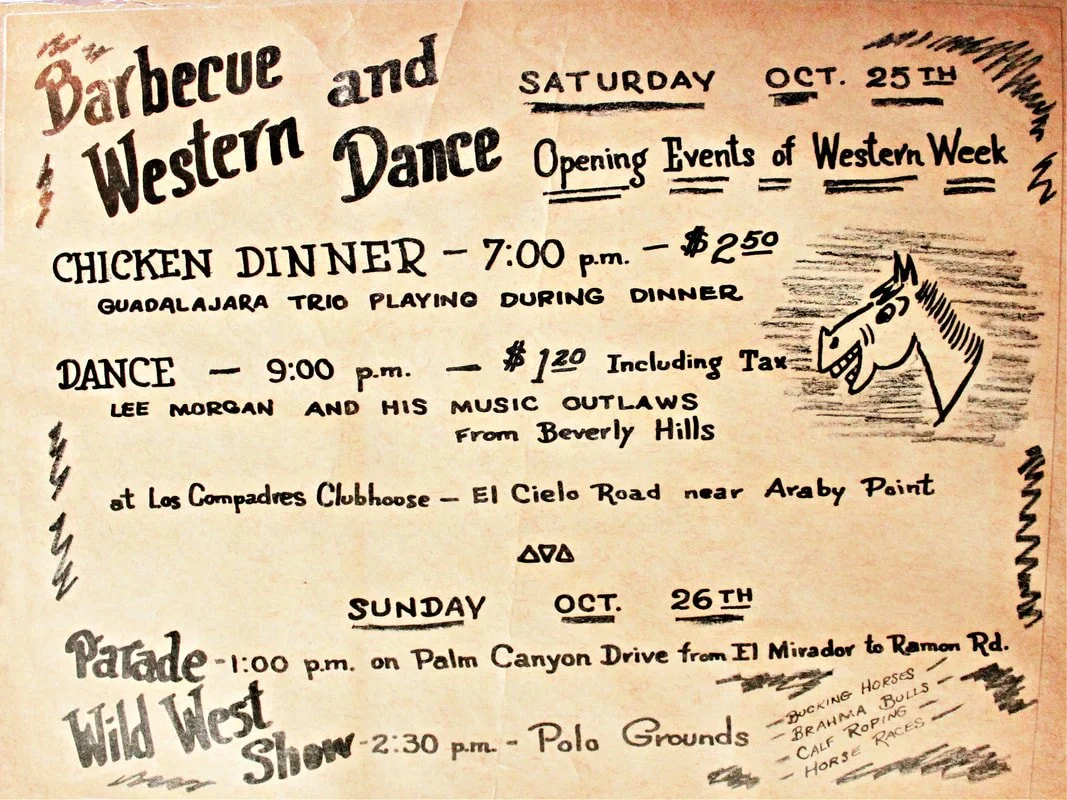 Barbecue and
Western Dance
SATURDAY OCT. 25TH
Opening Events of Western Week
CHICKEN DINNER - 7:00 p.m. - $2 50
GUADALAJARA TRIO PLAYING DURING DINNER
DANCE - 9:00 p.m. - $1 20 Including Tax
LEE MORGAN AND HIS MUSIC OUTLAWS
From Beverly Hills
at Los Compadres Clubhouse - El Cielo Road near Araby Point
SUNDAY OCT. 26TH
Parade - 1:00 p.m. on Palm Canyon Drive from El Mirador to Ramon Rd.
Wild West
Show - 2:30 p.m. - Polo Grounds
- BUCKING HORSES -
- BRAHMA BULLS -
- CALF ROPING -
- HORSE RACES -